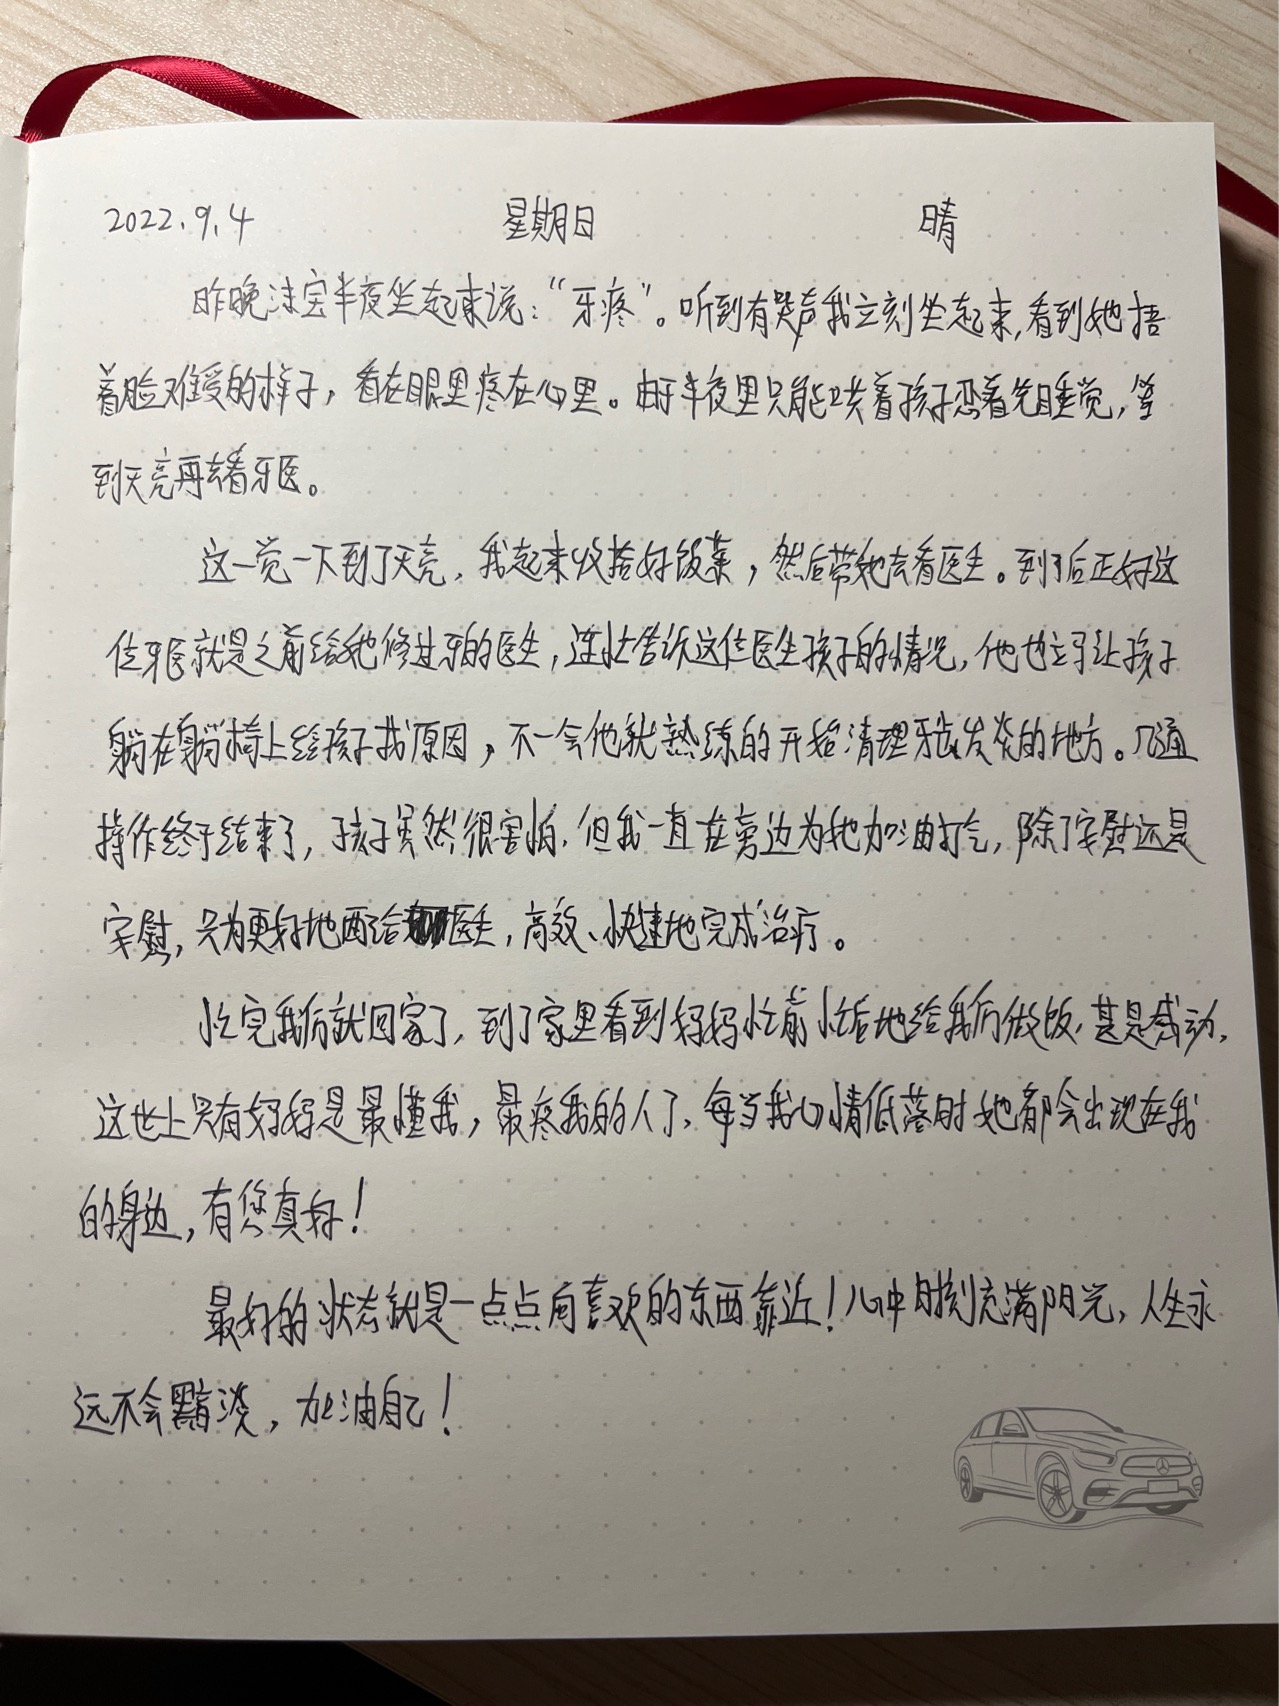 2022.9.4 星期日 晴
昨晚沫宝半夜坐起来说：“牙疼”。听到有哭声我立刻坐起来,看到她捂
着脸难受的样子，看在眼里疼在心里。由于半夜里只能哄着孩子忍着先睡觉，等
到天亮再去看牙医。
这一觉一下到了天亮，我起来收拾好饭菜，然后带她去看医生。到了后正好这
位牙医就是之前给她修过牙的医生，连忙告诉这位医生孩子的情况，他也立马让孩子
躺在躺椅上给孩子找原因，不一会他就熟练的开始清理牙齿发炎的地方。几通
操作终于结束了，孩子虽然很害怕，但我一直在旁边为她加油打气，除了安慰还是
安慰，只为更好地配合医生，高效、快速地完成治疗。
忙完我们就回家了，到了家里看到妈妈忙前忙后地给我们做饭，甚是感动，
这世上只有妈妈是最懂我，最疼我的人了，每当我心情低落时她都会出现在我
的身边，有您真好！
最好的状态就是一点点向喜欢的东西靠近！心中时刻充满阳光，人生永
远不会黯淡，加油自己！